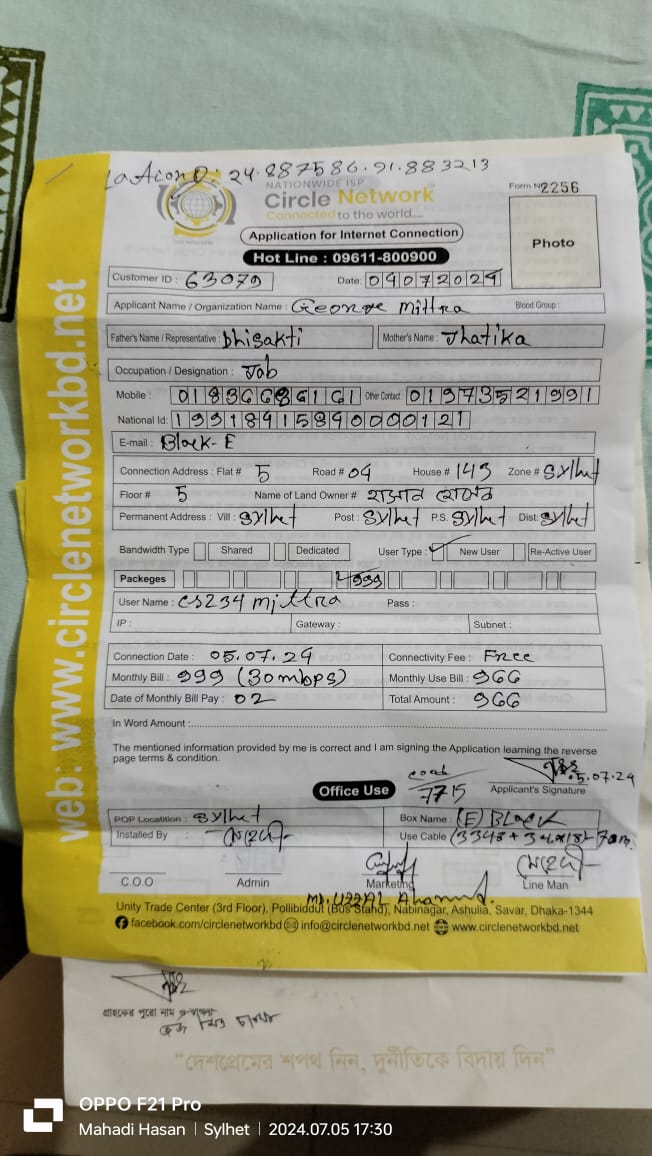 24.887586.91.883213
NATIONWIDE ISP
Circle Network
Connected to the world....
Form No 2256
Application for Internet Connection
Hot Line : 09611-800900
Photo
Customer ID : 63079 Date: 04072024
Applicant Name / Organization Name : George mittra Blood Group :
Father's Name / Representative : Dhisakti Mother's Name : Jhatika
Occupation / Designation : Job
Mobile : Other Contact 01973521991
National Id:
E-mail : Block-E
Connection Address : Flat # 5 Road # 04 House # 143 Zone # Sylhet
Floor # 5 Name of Land Owner # হাসান
Permanent Address : Vill : Sylhet Post : Sylhet P.S. Sylhet Dist: Sylhet
Bandwidth Type Shared Dedicated User Type : ✓ New User Re-Active User
Packeges 999
User Name : cs234 mittra Pass :
IP : Gateway : Subnet :
Connection Date : 05.07.24 Connectivity Fee : Free
Monthly Bill : 999 (30mbps) Monthly Use Bill : 966
Date of Monthly Bill Pay : 02 Total Amount : 966
In Word Amount :
The mentioned information provided by me is correct and I am signing the Application learning the reverse
page terms & condition.
5.07.24
Office Use
7715
Applicant's Signature
POP Locatition : Sylhet Box Name : (E) BLOCK
Installed By : Use Cable
C.O.O Admin Marketing Line Man
Md. UZZAL Ahammed.
Unity Trade Center (3rd Floor), Pollibiddut (Bus Stand), Nabinagar, Ashulia, Savar, Dhaka-1344
facebook.com/circlenetworkbd info@circlenetworkbd.net www.circlenetworkbd.net
web: www.circlenetworkbd.net
গ্রাহকের পুরো নাম ও স্বাক্ষর
“দেশপ্রেমের শপথ নিন, দুর্নীতিকে বিদায় দিন”
OPPO F21 Pro
Mahadi Hasan | Sylhet | 2024.07.05 17:30